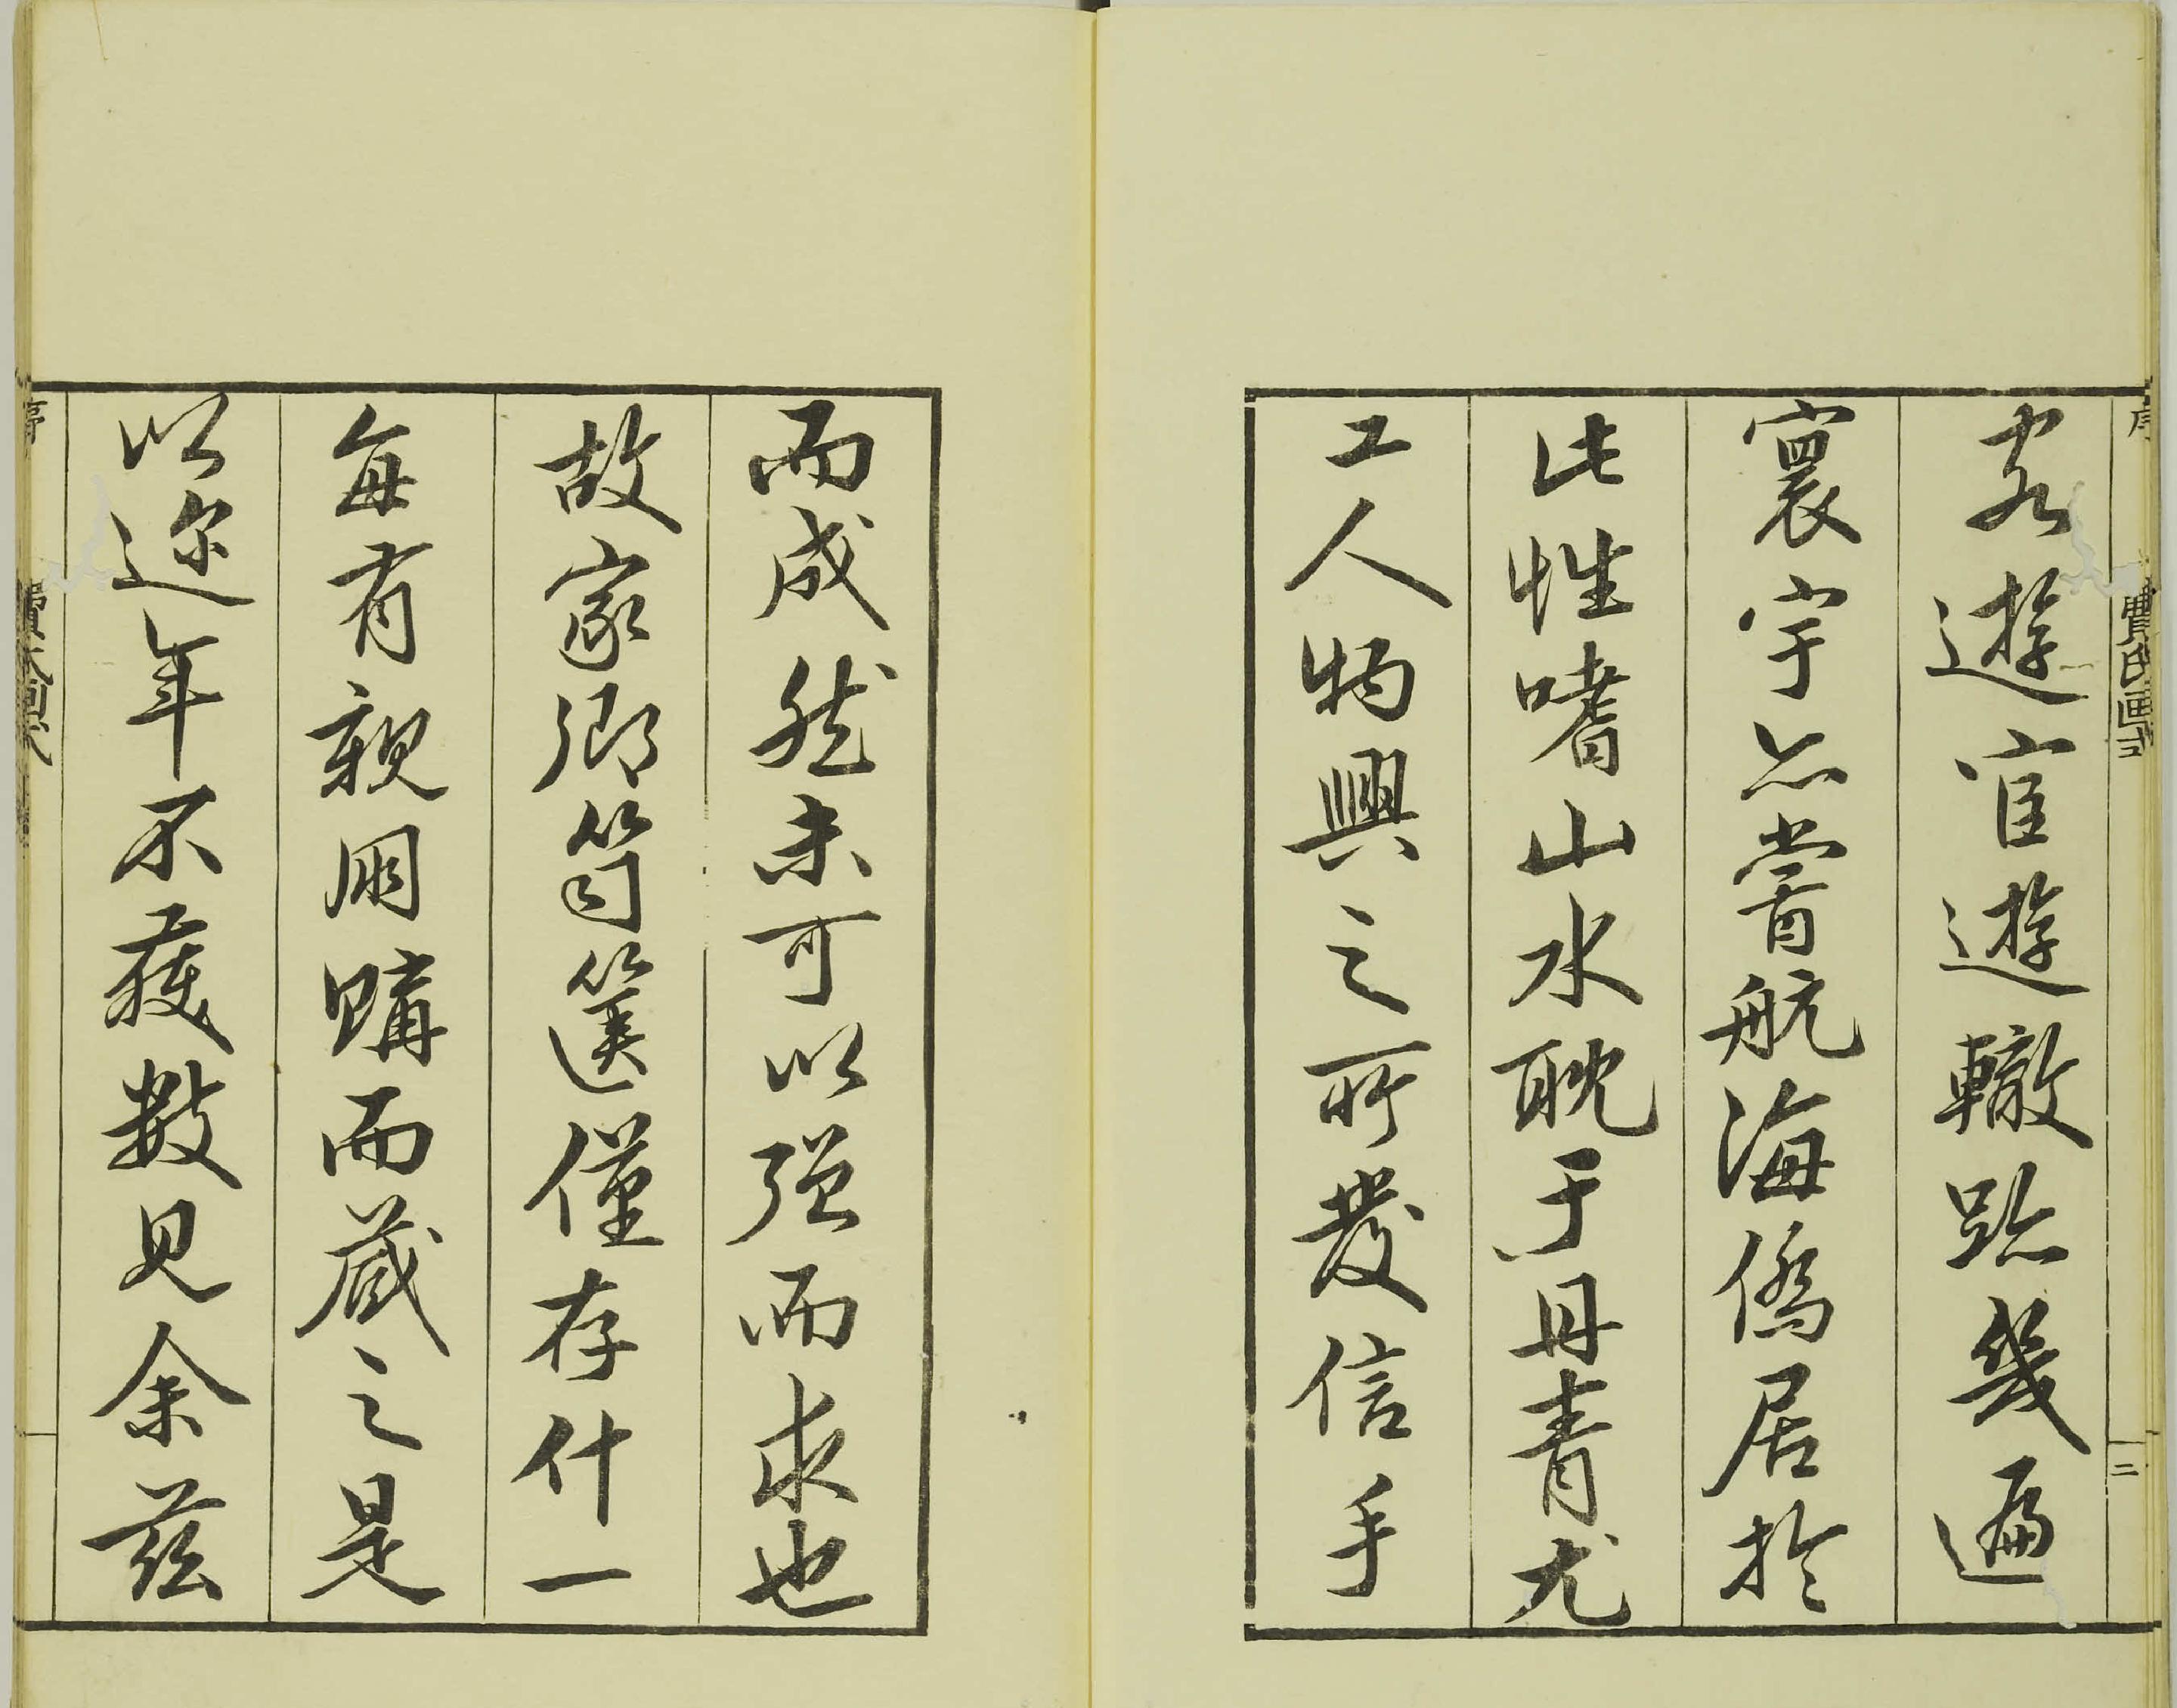 序
費氏画式
二
客遊宦遊轍跡幾遍
寰宇亦嘗航海僑居於
此性嗜山水耽于丹青尤
工人物興之所發信手
而成然未可以强而求也
故家鄉笥篋僅存什一
每有親朋購而藏之是
以迩年不獲數見余茲
序